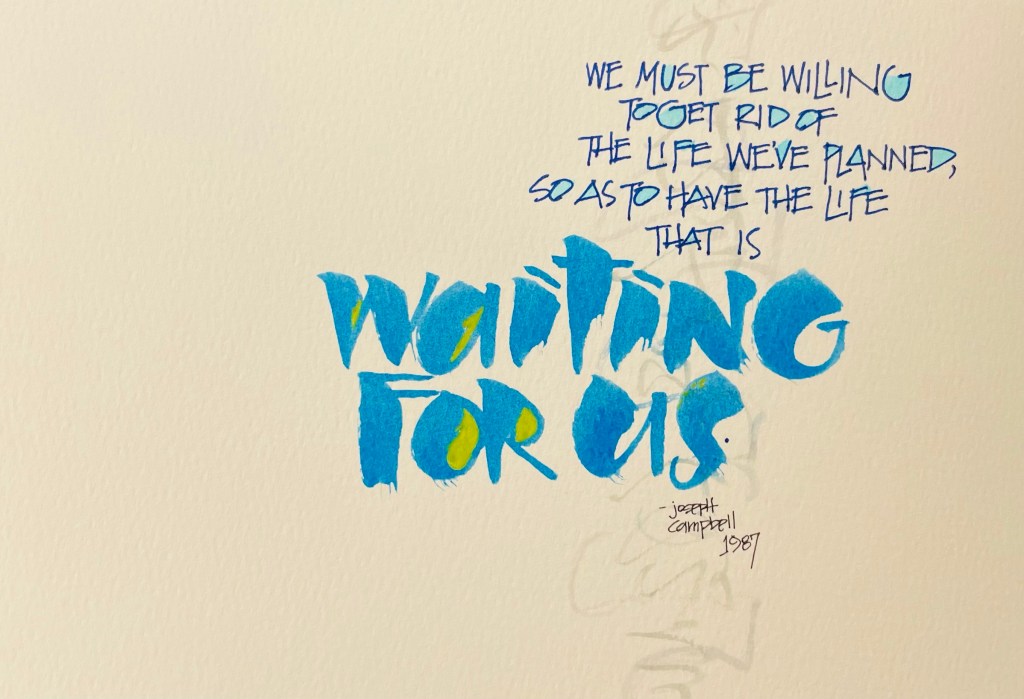 WE MUST BE WILLING
TO GET RID OF
THE LIFE WE'VE PLANNED,
SO AS TO HAVE THE LIFE
THAT IS
WAITING
FOR US.
- JOSEPH
CAMPBELL
1987